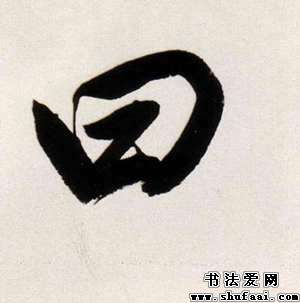 回
书法爱网
www.shufaai.com